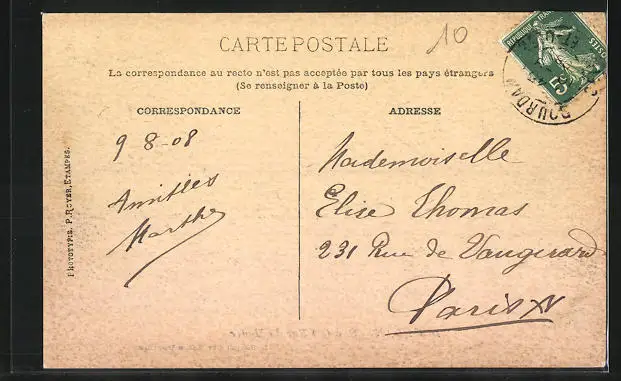 CARTE POSTALE
10
La correspondance au recto n'est pas acceptée par tous les pays étrangers
(Se renseigner à la Poste)
CORRESPONDANCE
ADRESSE
9 8-08
Amitiés
Marthe
Mademoiselle
Elise Thomas
231 Rue de Vaugirard
Paris XV
PHOTOTYPIE. P. ROYER, ÉTAMPES.
RÉPUBLIQUE
POSTES
5
DOURDAN